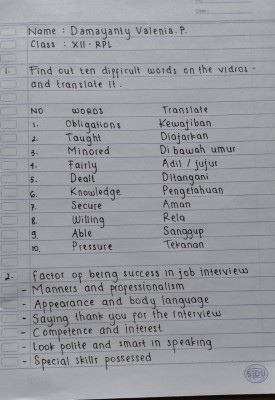 Name : Damayanty Valenia.P.
Class : XII - RPL
1. Find out ten difficult words on the vidros -
and translate it.
NO WORDS Translate
1. Obligations Kewajiban
2. Taught Diajarkan
3. Minored Di bawah umur
4. Fairly Adil / jujur
5. Dealt Ditangani
6. Knowledge Pengetahuan
7. Secure Aman
8. Willing Rela
9. Able Sanggup
10. Pressure Tekanan
2. Factor of being success in job interview
- Manners and professionalism
- Appearance and body language
- Saying thank you for the interview
- Competence and interest
- Look polite and smart in speaking
- Special skills possessed
SIDU